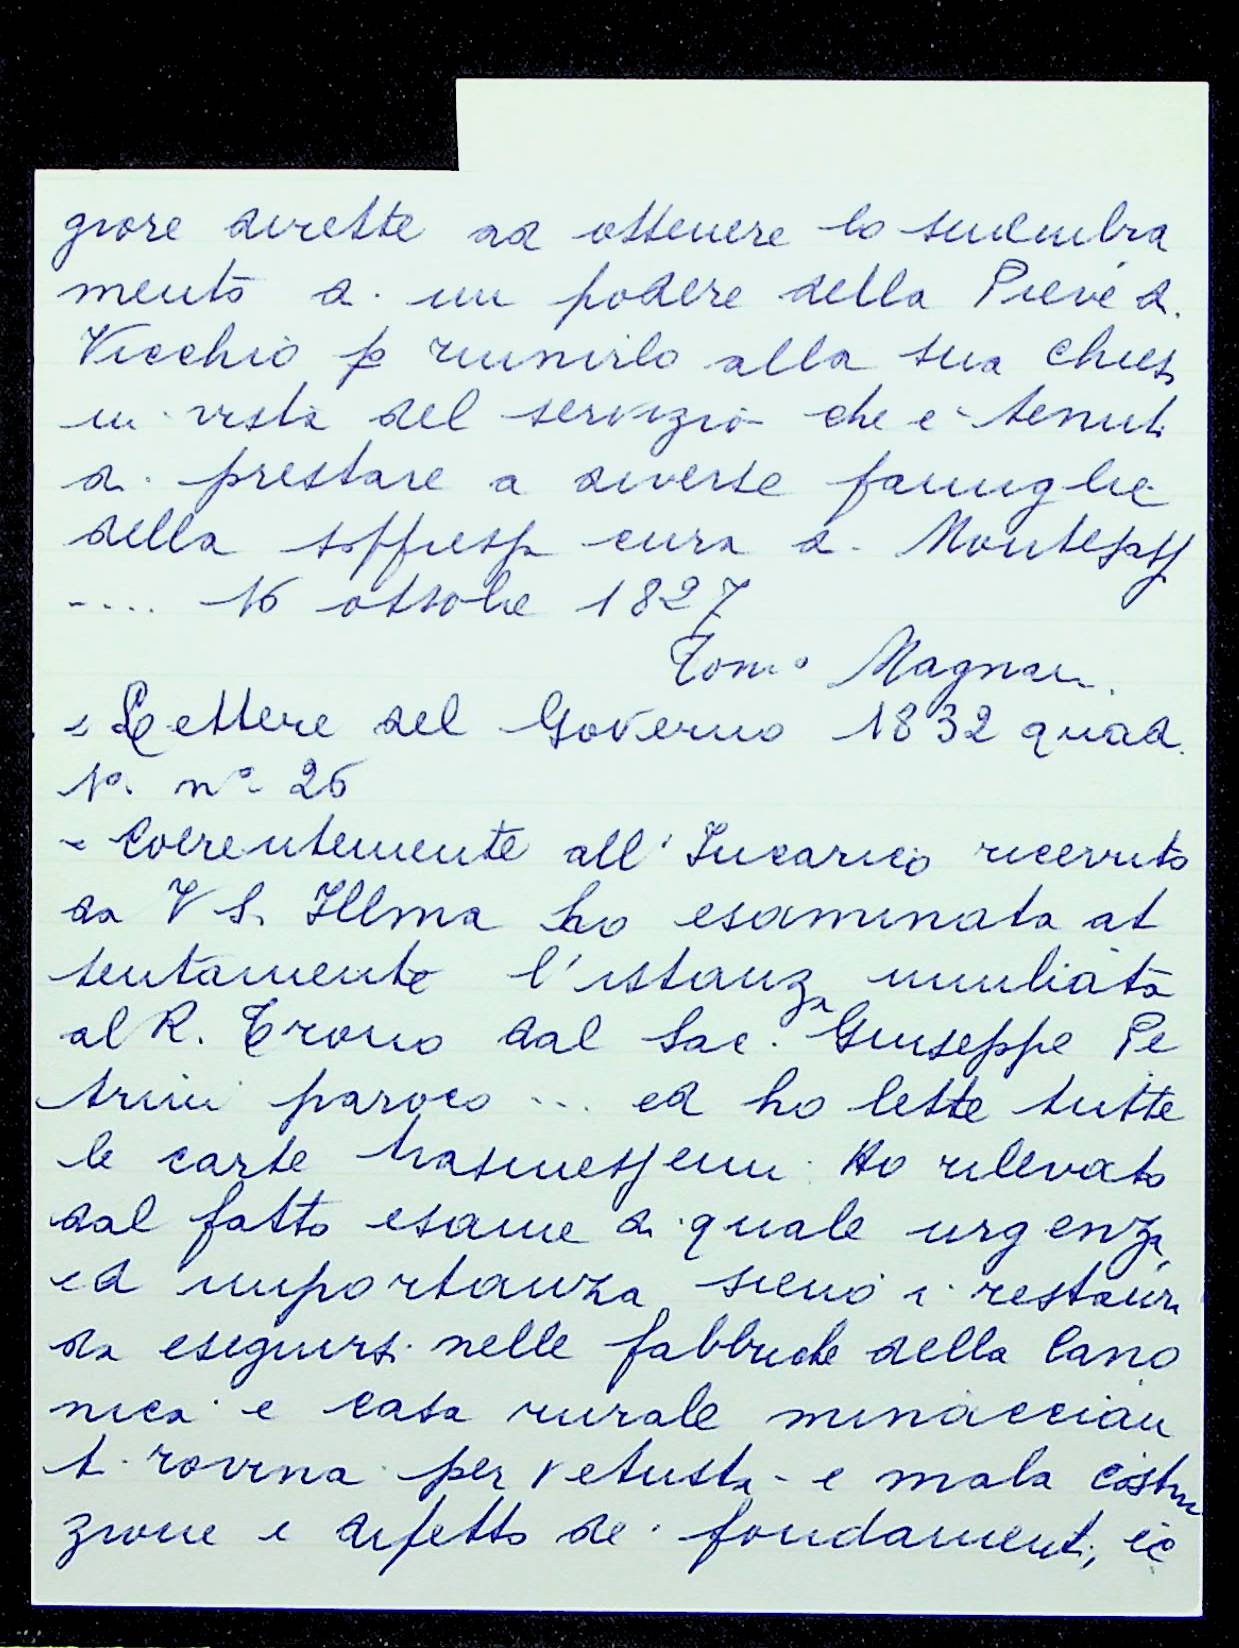 giore dirette ad ottenere lo smembra
mento di un podere della Pieve di
Vicchio p riunirlo alla sua chies
in vista del servizio che è tenut
di prestare a diverse famiglie
della soppressa cura di
.... 16 ottobre 1827
Tom.o Magnani
= Lettere del Governo 1832 quad.
1º. nº. 26
= Coerentemente all'Incarico ricevuto
da V S. Illma ho esaminata at
tentamente l'istanza umiliata
al R. Trono dal Sac. Giuseppe Pe
trini paroco ... ed ho lette tutte
le carte trasmessemi. Ho rilevato
dal fatto esame di quale urgenza
ed importanza sieno i restauri
da eseguirsi nelle fabbriche della Cano
nica e casa rurale minaccian
ti rovina per vetustà e mala costru
zione e difetto de' fondamenti, e